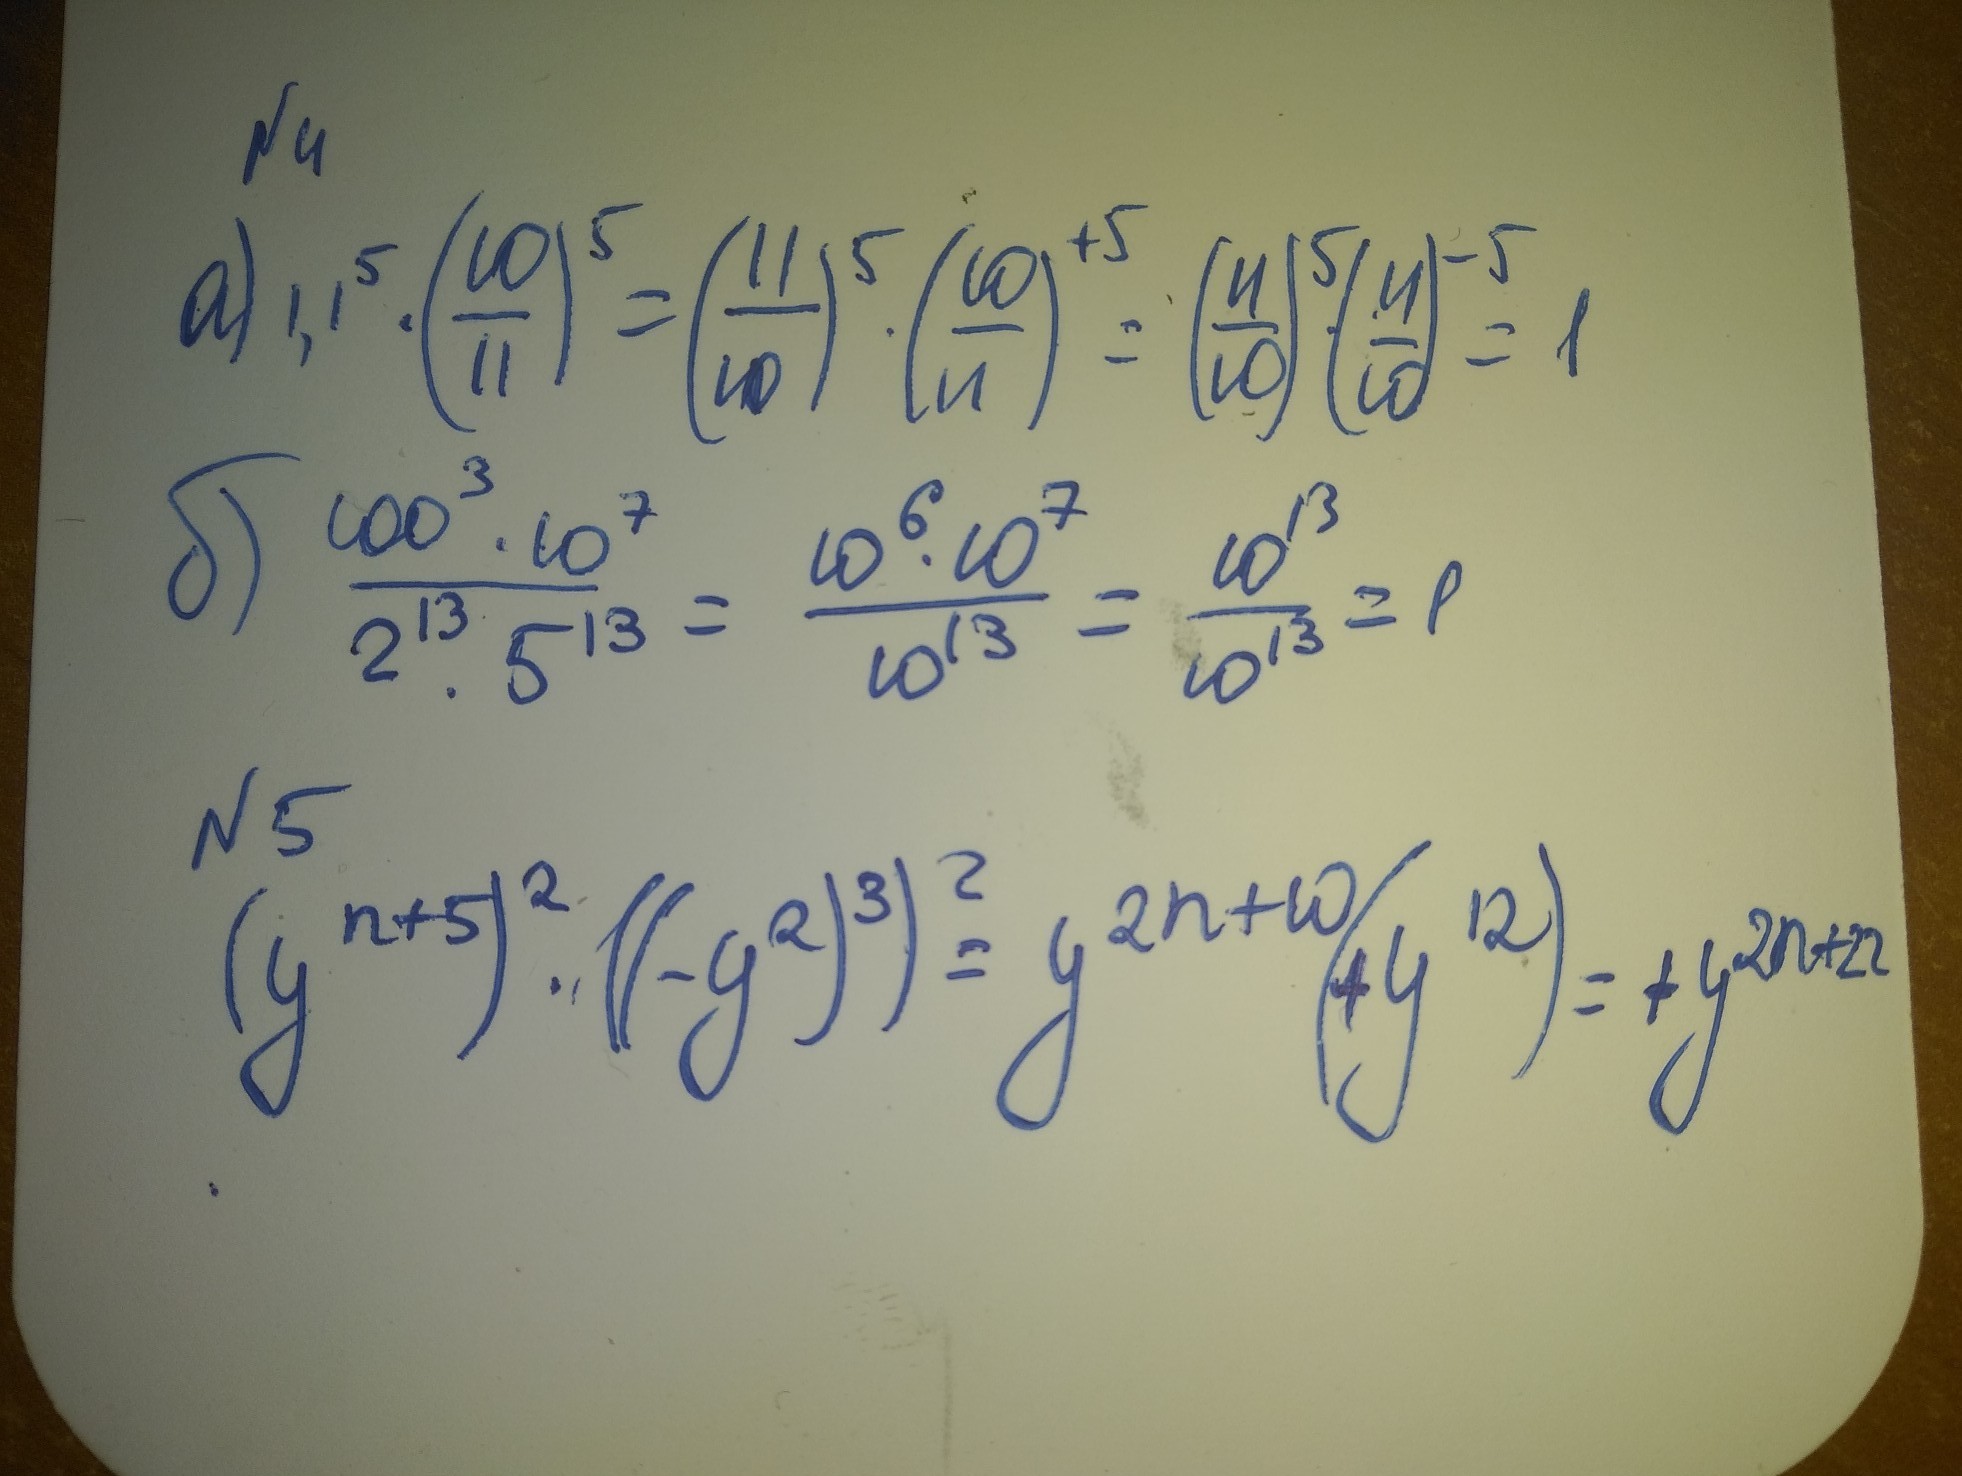 №4
а) 1,1^5 · (10/11)^5 = (11/10)^5 · (10/11)^+5 = (11/10)^5 · (11/10)^-5 = 1
б) (100^3 · 10^7)/(2^13 · 5^13) = (10^6 · 10^7)/(10^13) = 10^13/10^13 = 1
№5
(y^(n+5))^2 · ((-y^2)^3)^2 = y^(2n+10) (+y^12) = +y^(2n+22)